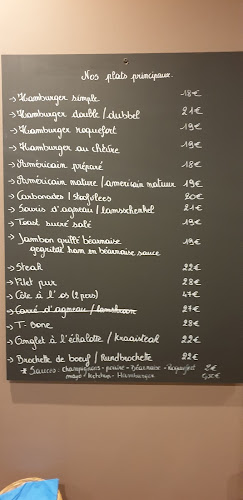 Nos plats principaux
→ Hamburger simple -18€
→ Hamburger double / dubbel 21€
→ Hamburger roquefort -19€
→ Hamburger au chèvre 19€
→ Américain préparé 18€
→ Américain nature / americain natuur 19€
→ Carbonades / Stoofvlees 20€
→ Souris d'agneau / Lamsschenkel 21€
→ Toast sucré salé 19€
→ Jambon grillé béarnaise 19€
gegrilde ham en béarnaise sauce
→ Steak 22€
→ Filet pur 28€
→ Côte à l'os (2 pers) 47€
→ Carré d'agneau / Lamskroon 27€
→ T-bone 28€
→ Onglet à l'échalotte / Kraaisteak 22€
→ Brochette de boeuf / Rundbrochette 22€
* Sauces: champignons - poivre - Béarnaise - Roquefort 2€
mayo / Ketchup - Hamburger